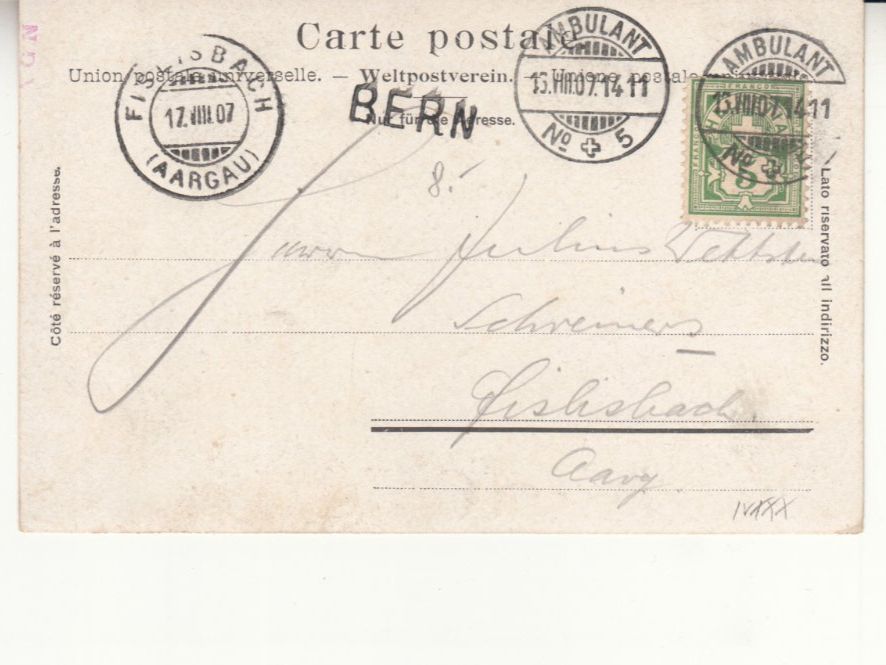 Carte postale.
Union postale universelle. — Weltpostverein. — Unione postale
Nur für die Adresse.
Côté réservé à l'adresse.
Lato riservato all indirizzo.
FISLISBACH
17.VIII.07
(AARGAU)
BERN
AMBULANT
13.VIII.07.14 11
No 5
AMBULANT
13.VIII.07.14 11
No
FRANCO
5
8.-
Herrn Julius Wettstein
Schreiners
Fislisbach.
Aarg.